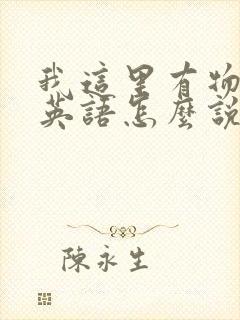 我這里有物
英語怎麼說
陳永生